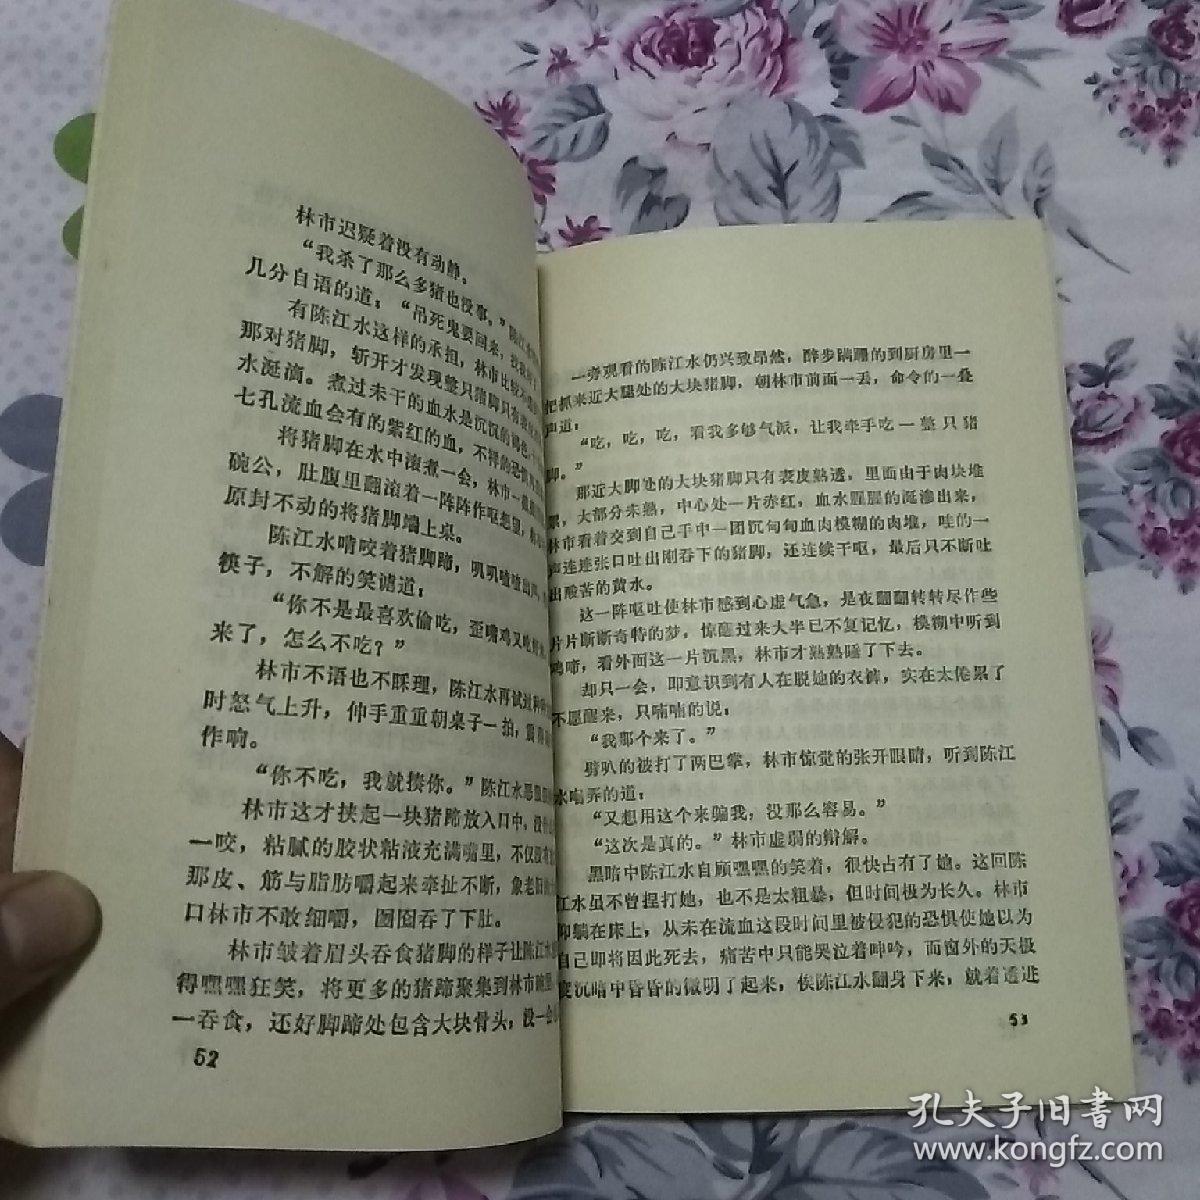 林市迟疑着没有动静。
“我杀了那么多猪也没事。”陈江水
几分自语的道：“吊死鬼要回来，
有陈江水这样的承担，林市比较
那对猪脚，斩开才发现整只猪脚只有
水涎滴。煮过未干的血水是沉沉的褐色，
七孔流血会有的紫红的血，不祥的恐惧
将猪脚在水中滚煮一会，林市一
碗公，肚腹里翻滚着一阵阵作呕想望，
原封不动的将猪脚端上桌。
陈江水啃咬着猪脚蹄，叽叽喳喳出声，
筷子，不解的笑谑道：
“你不是最喜欢偷吃，歪嘴鸡又吃
来了，怎么不吃？”
林市不语也不睬理，陈江水再试过
时怒气上升，伸手重重朝桌子一拍，
作响。
“你不吃，我就揍你。”陈江水恶狠
林市这才挟起一块猪蹄放入口中，没
一咬，粘腻的胶状粘液充满嘴里，不仅
那皮、筋与脂肪嚼起来牵扯不断，象老
口林市不敢细嚼，囫囵吞了下肚。
林市皱着眉头吞食猪脚的样子让陈江水
得嘿嘿狂笑，将更多的猪蹄聚集到林市碗里
一吞食，还好脚蹄处包含大块骨头，没一会
52
一旁观看的陈江水仍兴致昂然，醉步蹒跚的到厨房里一
把抓来近大腿处的大块猪脚，朝林市前面一丢，命令的一叠
声道：
“吃，吃，吃，看我多够气派，让我牵手吃一整只猪
脚。”
那近大脚处的大块猪脚只有表皮熟透，里面由于肉块堆
累，大部分未熟，中心处一片赤红，血水腥腥的涎渗出来，
林市看着交到自己手中一团沉甸甸血肉模糊的肉堆，哇的一
声连连张口吐出刚吞下的猪脚，还连续干呕，最后只不断吐
出酸苦的黄水。
这一阵呕吐使林市感到心虚气急，是夜翻翻转转尽作些
片片断断奇特的梦，惊醒过来大半已不复记忆，模糊中听到
鸡啼，看外面这一片沉黑，林市才熟熟睡了下去。
却只一会，即意识到有人在脱她的衣裤，实在太倦累了
不愿醒来，只喃喃的说：
“我那个来了。”
劈叭的被打了两巴掌，林市惊觉的张开眼睛，听到陈江
水嘲弄的道：
“又想用这个来骗我，没那么容易。”
“这次是真的。”林市虚弱的辩解。
黑暗中陈江水自顾嘿嘿的笑着，很快占有了她。这回陈
江水虽不曾捏打她，也不是太粗暴，但时间极为长久。林市
仰躺在床上，从未在流血这段时间里被侵犯的恐惧使她以为
自己即将因此死去，痛苦中只能哭泣着呻吟，而窗外的天极
度沉暗中昏昏的微明了起来，俟陈江水翻身下来，就着透进
53
孔夫子旧书网
www.kongfz.com